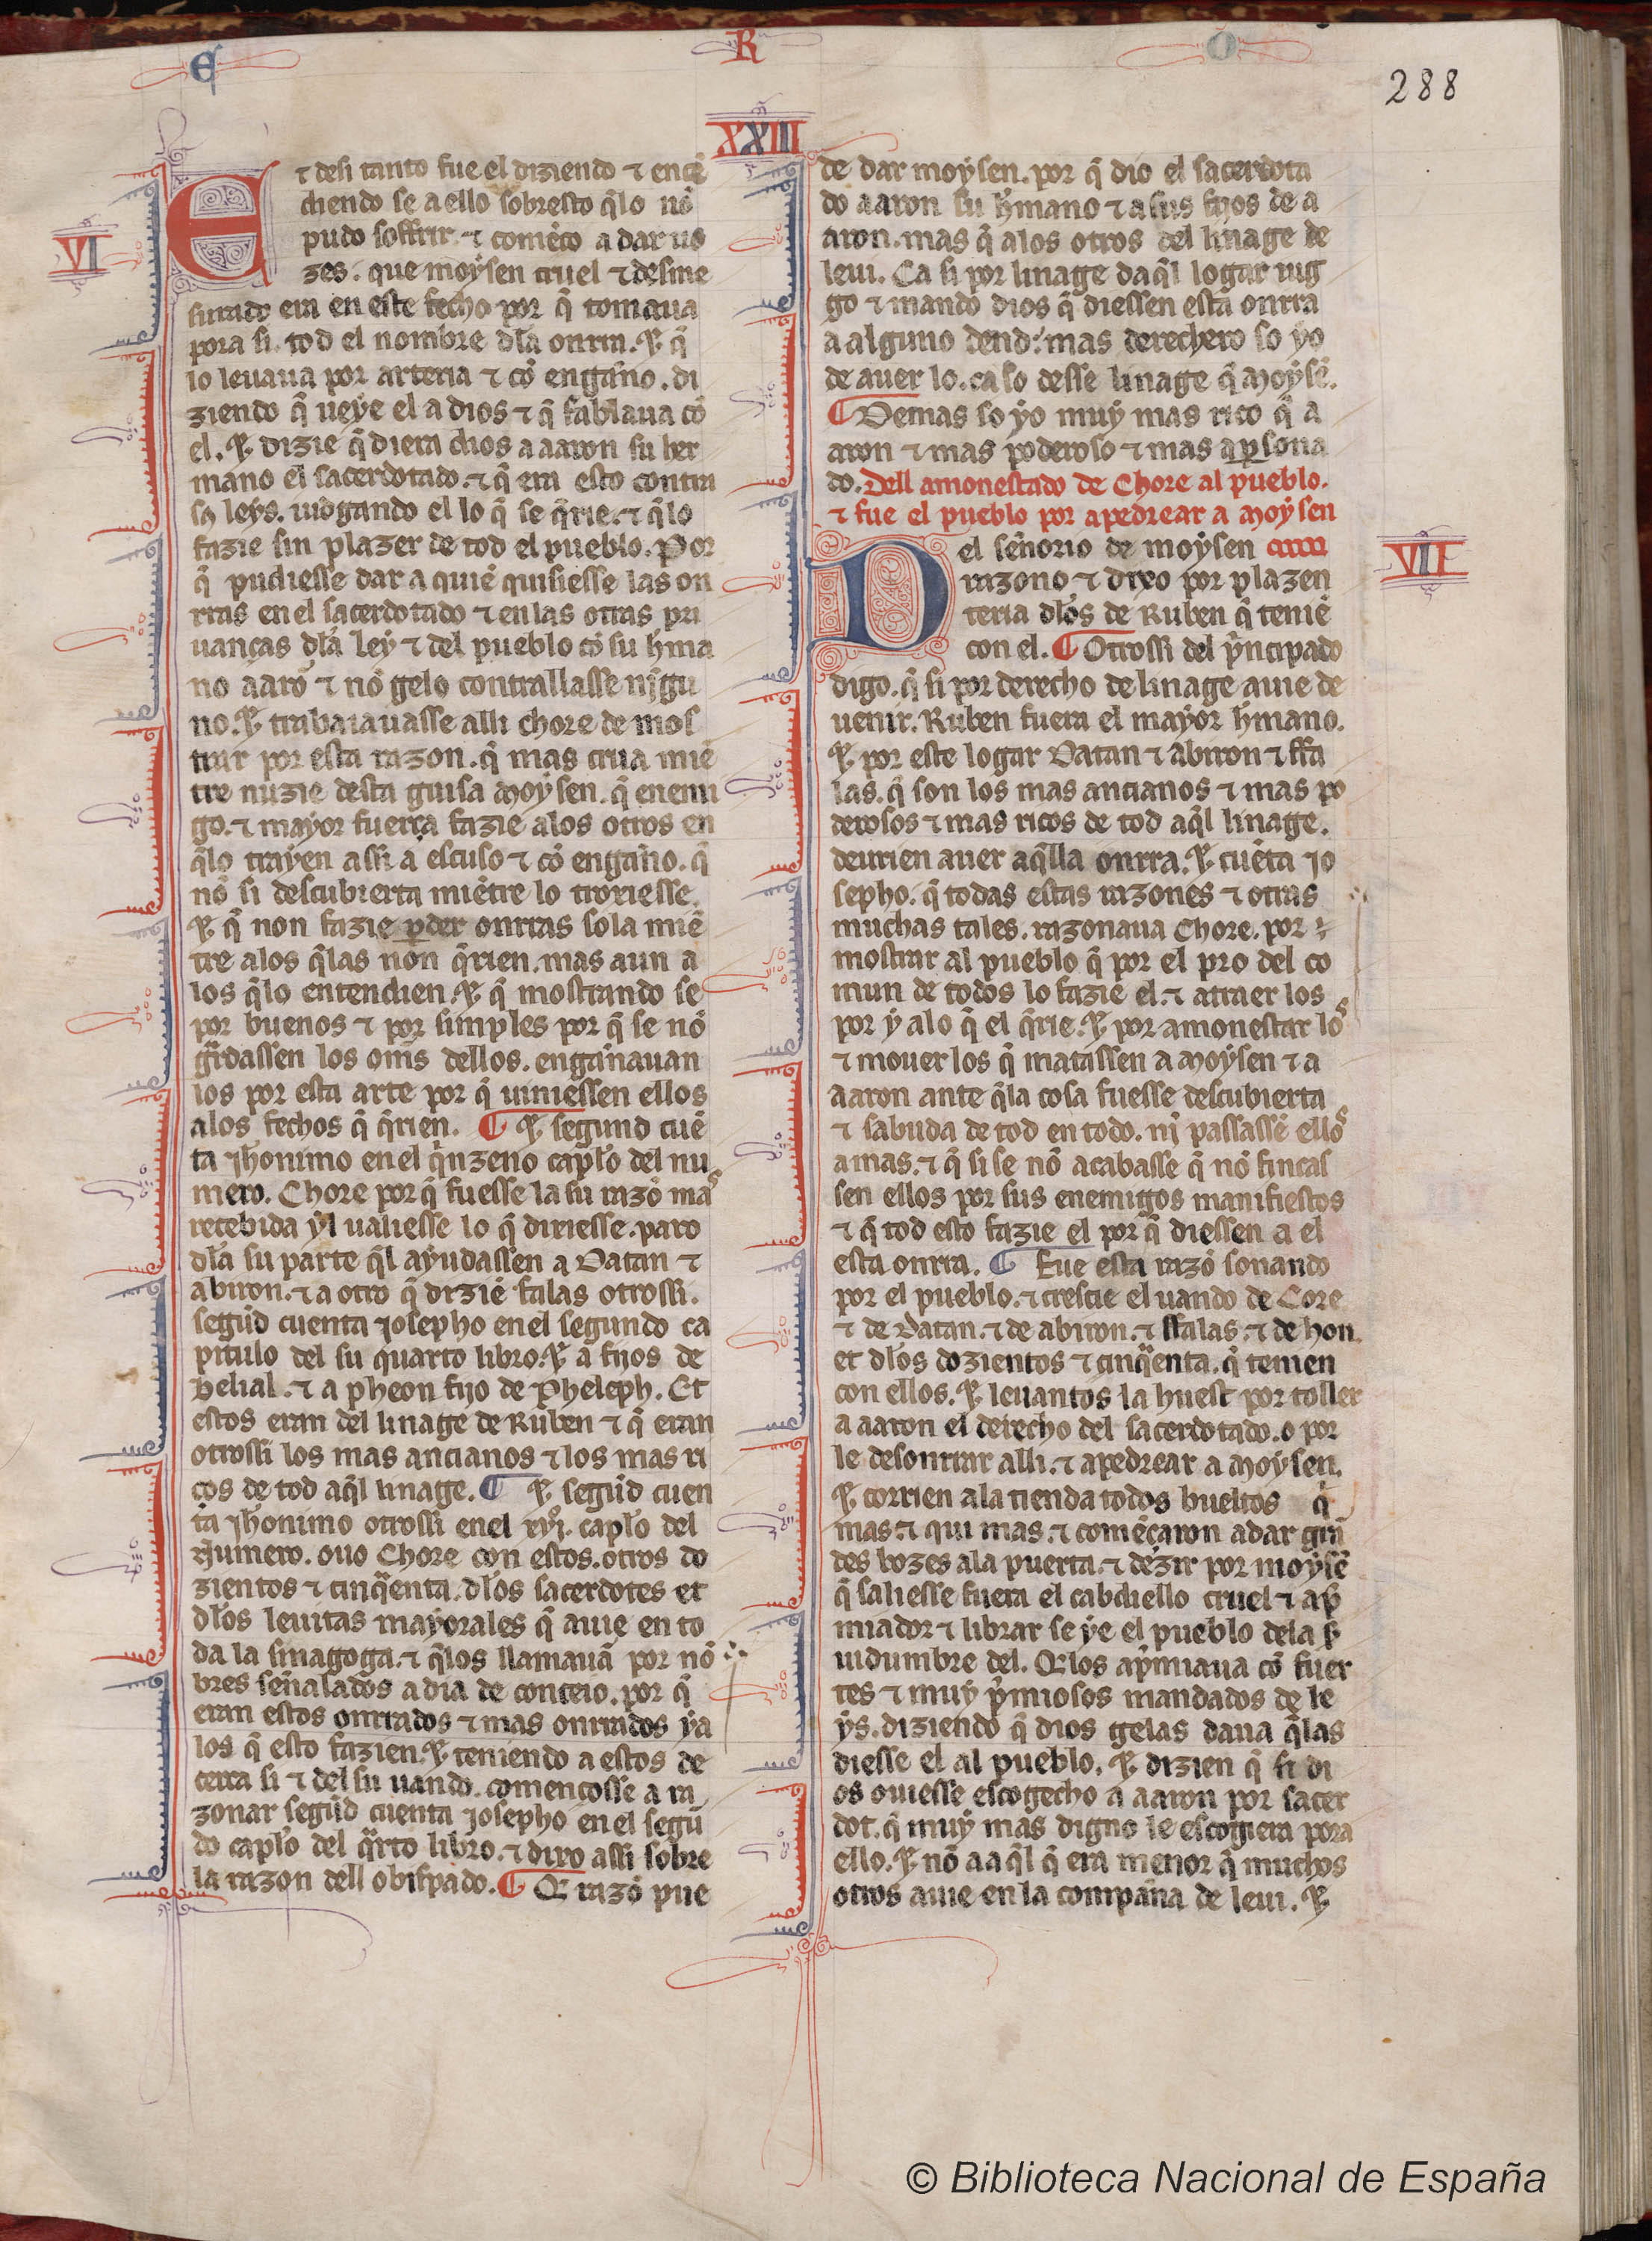 E
R
O
288
XXIII
VI
Et desi tanto fue el diziendo ⁊ encē
diendo se a ello sobresto q̄lo nō
pudo soffrir. ⁊ comēço a dar uo
zes. que moysen cruel ⁊ desme
surado era en este fecho por q̄ tomaua
pora si tod el nombre dl̄a onrra. ⁊ q̄
lo leuaua por arteria ⁊ cō enganno. di
ziendo q̄ ueye el a dios ⁊ q̄ fablaua cō
el. ⁊ dizie q̄ diera dios a aaron su her
mano el sacerdotado. ⁊ q̄ era esto contra
sꝯ leys. iudgando el lo q̄ se q̄rie. ⁊ q̄lo
fazie sin plazer de tod el pueblo. Por
q̄ pudiesse dar a quiē quisiesse las on
rras en el sacerdotado ⁊ en las otras pri
uanças dl̄a ley ⁊ del pueblo cō su hr̄ma
no aarō ⁊ nō gelo contrallasse nīgu
no. ⁊ trabaiauasse alli chore de mos
trar por esta razon. q̄ mas crua miē
tre nuzie desta guisa moysen. q̄ enemi
go. ⁊ mayor fuerça fazie alos otros en
q̄lo trayen assi a escuso ⁊ cō enganno. q̄
nō si descubierta miētre lo troxiesse.
⁊ q̄ non fazie ꝑder onrras sola miē
tre alos q̄las non q̄rien. mas aun a
los q̄lo entendien. ⁊ q̄ mostrando se
por buenos ⁊ por simples por q̄ se nō
gr̄dassen los om̄s dellos. engannauan
los por esta arte por q̄ uiniessen ellos
alos fechos q̄ q̄rien. ¶ ⁊ segund cuē
ta Jheronimo en el q̄nzeno capl̄o del nu
mero. Chore por q̄ fuesse la su razō mas
recebida yl ualiesse lo q̄ dixiesse. paro
dl̄a su parte q̄l ayudassen a Datan ⁊
abiron. ⁊ a otro q̄ dizē falas otrossi.
segūd cuenta Josepho en el segundo ca
pitulo del su quarto libro. ⁊ a fijos de
helial. ⁊ a pheon fijo de Pheleph. Et
estos eran del linage de Ruben ⁊ q̄ eran
otrossi los mas ancianos ⁊ los mas ri
cos de tod aq̄l linage. ¶ ⁊ segūd cuen
ta Jheronimo otrossi en el xvj. capl̄o del
Numero. ouo Chore con estos. otros do
zientos ⁊ cinq̄enta. dl̄os sacerdotes et
dl̄os leuitas mayorales q̄ auie en to
da la sinagoga. ⁊ q̄los llamauā por nō
bres sennalados a dia de conceio. por q̄
eran estos onrrados ⁊ mas onrrados ya
los q̄ esto fazien. ⁊ teniendo a estos de
cerca si ⁊ del su uando. començosse a ra
zonar segūd cuenta Josepho en el segū
do capl̄o del q̄rto libro. ⁊ dixo assi sobre
la razon dell obispado. ¶ Q̄ razō pue
de dar moysen. por q̄ dio el sacerdota
do a aaron su hr̄mano ⁊ a sus fijos de a
aron. mas q̄ alos otros del linage de
leui. Ca si por linage daq̄l logar iug
go ⁊ mando dios q̄ diessen esta onrra
a alguno dend. mas derechero so yo
de auer lo. ca so desse linage q̄ moysē.
¶ Demas so yo muy mas rico q̄ a
aron ⁊ mas poderoso ⁊ mas aꝑsona
do. Dell amonestado de Chore al pueblo.
⁊ fue el pueblo por apedrear a moysen
VII
Del sennorio de moysen
razono ⁊ dixo por plazen
teria dl̄os de Ruben q̄ teniē
con el. ¶ Otrossi del p̄ncipado
digo. q̄ si por derecho de linage auie de
uenir. Ruben fuera el mayor hr̄mano.
⁊ por este logar Datan ⁊ abiron ⁊ ffa
las. q̄ son los mas ancianos ⁊ mas po
derosos ⁊ mas ricos de tod aq̄l linage.
deurien auer aq̄lla onrra. ⁊ cuēta Jo
sepho. q̄ todas estas razones ⁊ otras
muchas tales. razonaua Chore. por
mostrar al pueblo q̄ por el pro del co
mun de todos lo fazie el. ⁊ atraer los
por y alo q̄ el q̄rie. ⁊ por amonestar los
⁊ mouer los q̄ matassen a moysen ⁊ a
aaron ante q̄la cosa fuesse descubierta
⁊ sabuda de tod en todo. nī passassē ellos
a mas. ⁊ q̄ si se nō acabasse q̄ nō fincas
sen ellos por sus enemigos manifiestos
⁊ q̄ tod esto fazie el por q̄ diessen a el
esta onrra. ¶ Fue esta razō sonando
por el pueblo. ⁊ crescie el uando de Core
⁊ de Datan. ⁊ de abiron. ⁊ ffalas. ⁊ de hon.
et dl̄os dozientos ⁊ cinq̄enta. q̄ tenien
con ellos. ⁊ leuantos la huest por toller
a aaron el derecho del sacerdotado. o por
le desonrrar alli. ⁊ apedrear a moysen.
⁊ corrien ala tienda todos bueltos q̄
mas. ⁊ qui mas. ⁊ comēçaron a dar grā
des bozes ala puerta. ⁊ dezir por moysē
q̄ saliesse fuera el cabdiello cruel ⁊ ap̄
miador ⁊ librar se ye el pueblo dela s̄
uidumbre del. Q̄ los ap̄miaua cō fuer
tes ⁊ muy p̄miosos mandados de le
ys. diziendo q̄ dios gelas daua q̄las
diesse el al pueblo. ⁊ dizien q̄ si di
os ouiesse escogecho a aaron por sacer
dot. q̄ muy mas digno le escogiera pora
ello. ⁊ nō a aq̄l q̄ era menor q̄ muchos
otros auie en la companna de leui. ⁊
© Biblioteca Nacional de España